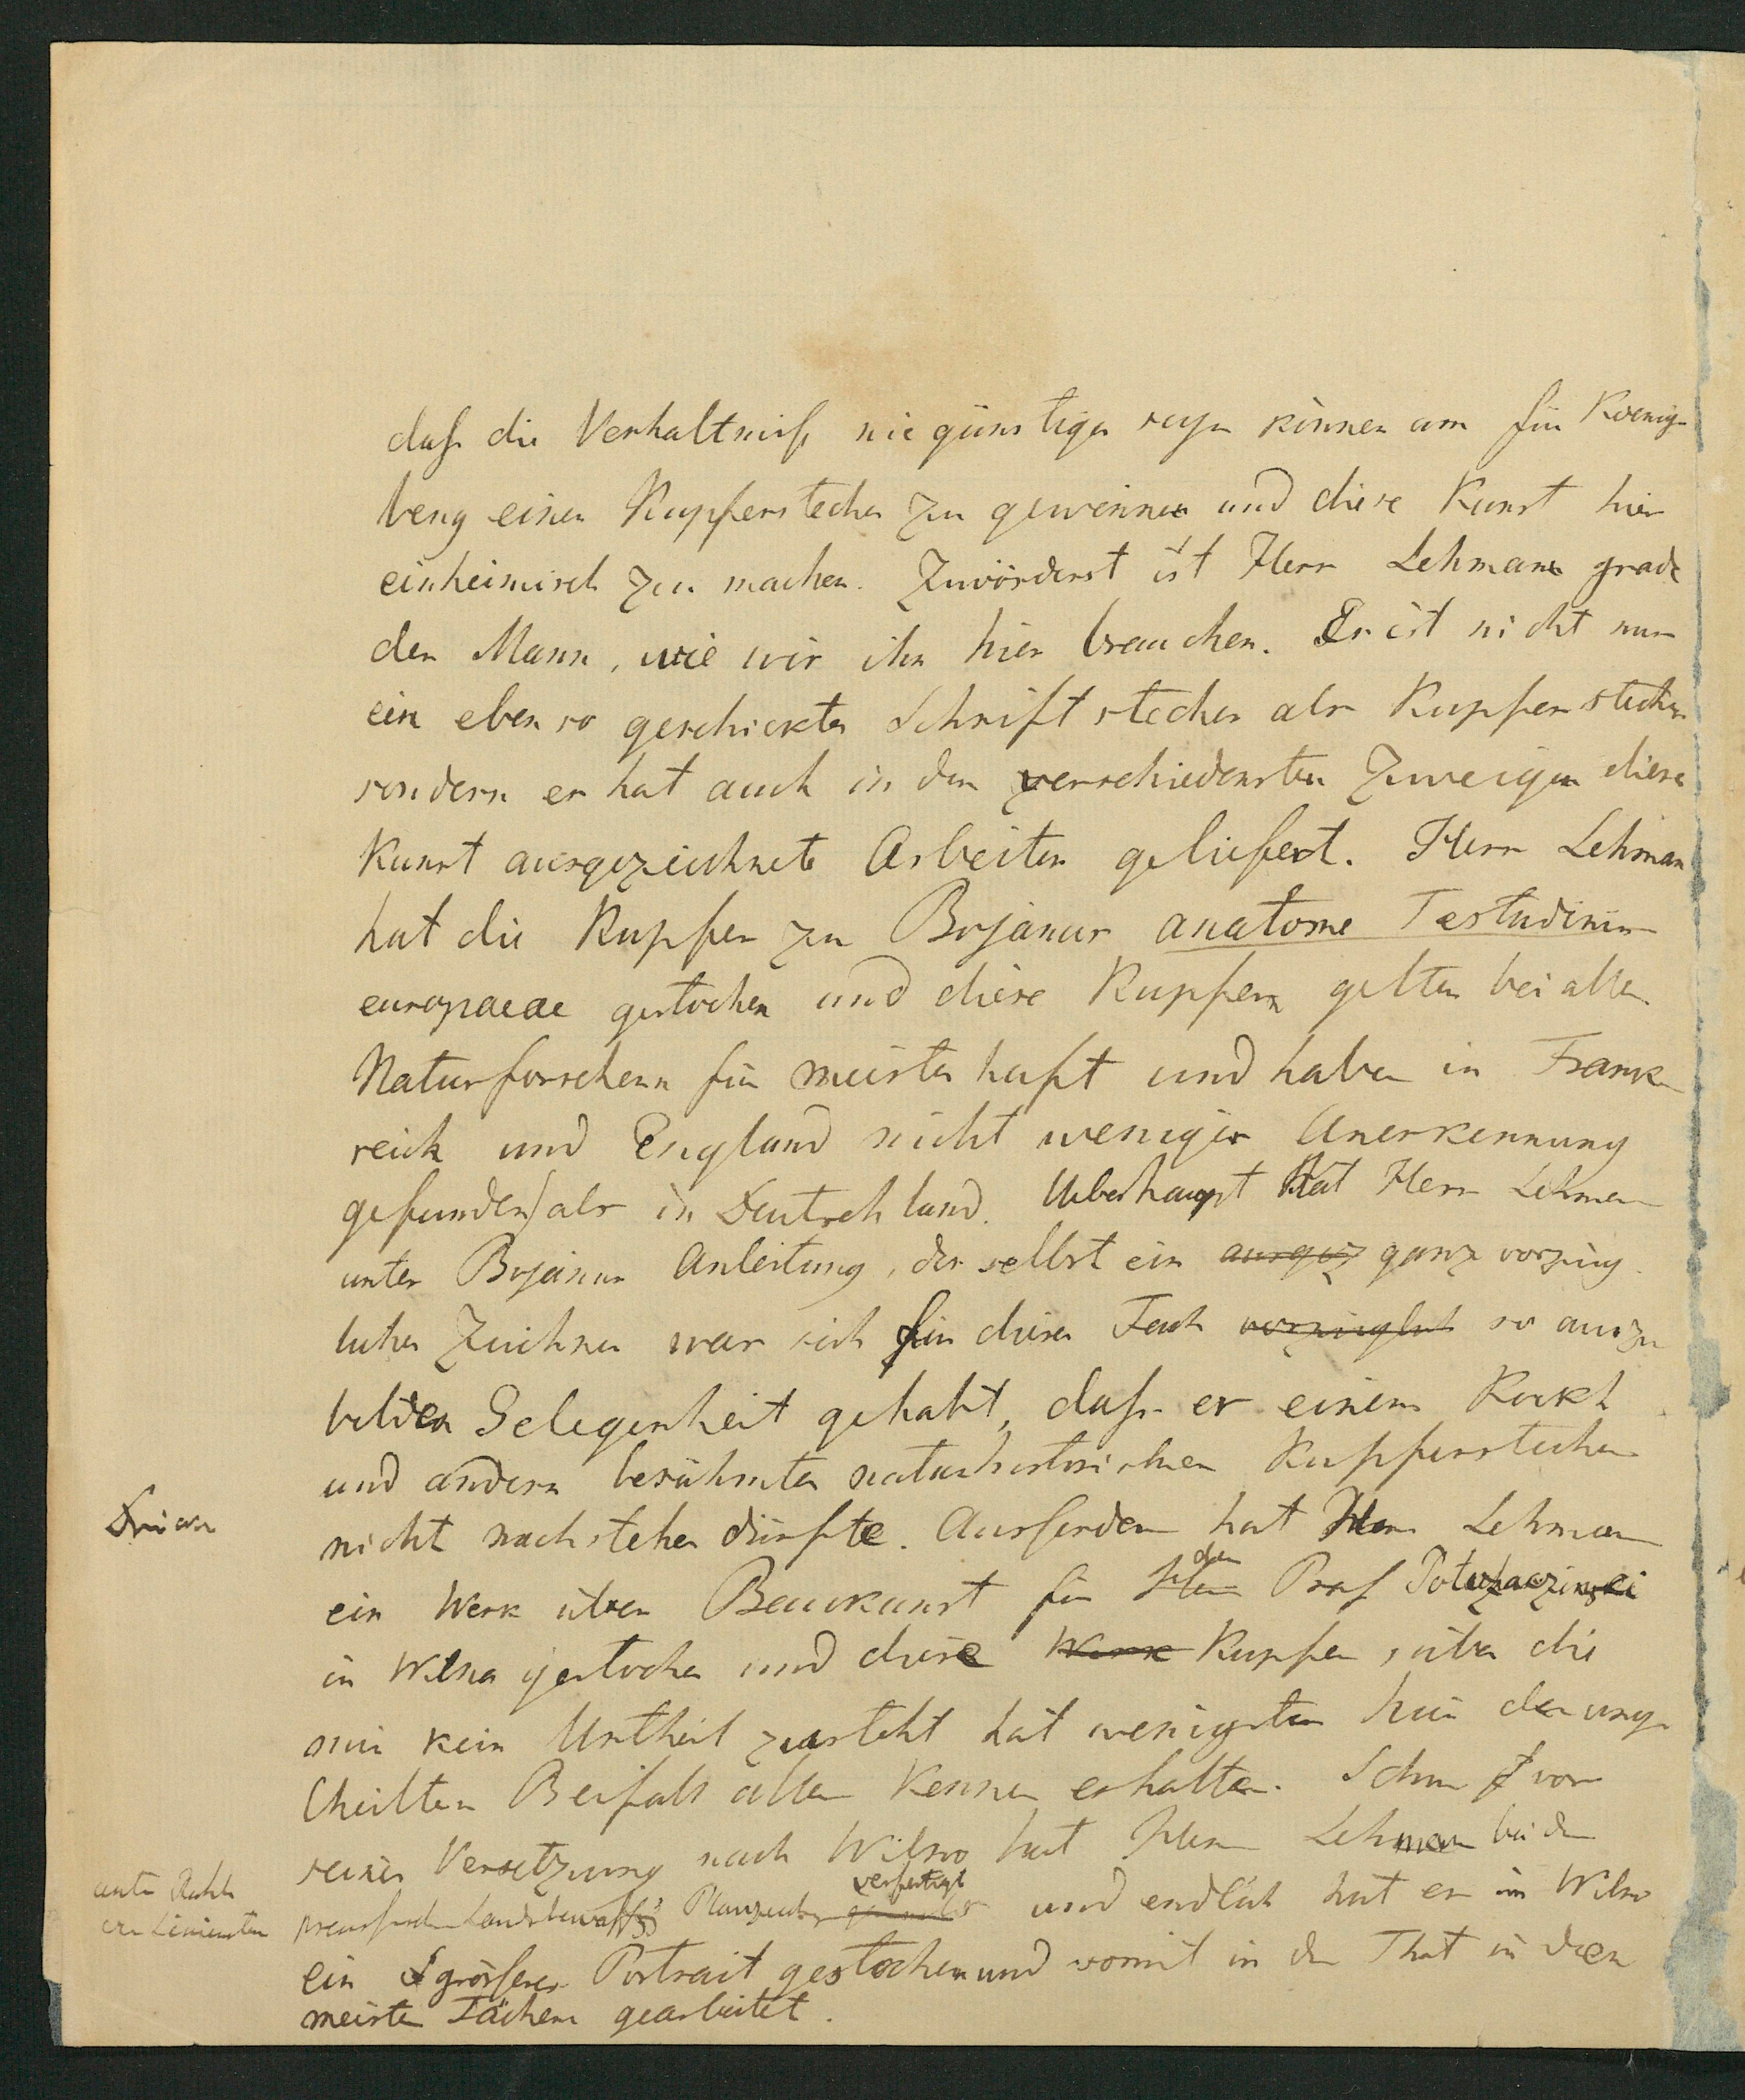 daß die Verhaltniße nie günstiger seyn können um für Koenigs-
berg einen Kupferstecher zu gewinnen und diese Kunst hier
einheimisch zu machen. Zuvörderst ist Herr Lehmann grade
der Mann, wie wir ihn hier brauchen. Er ist nicht nur
ein eben so geschickter Schriftstecher als Kupferstecher
sondern er hat auch in den verschiedensten Zweigen dieser
Kunst ausgezeichnete Arbeiten geliefert. Herr Lehmann
hat die Kupfer zu Bojanus anatome Testudinis
europaeae gestochen und diese Kupfern gelten bei allen
Naturforschern für meisterhaft und haben in Frank-
reich und England nicht weniger Anerkennung
gefunden als in Deutschland. Ueberhaupt hat Herr Lehmann
unter Bojanus Anleitung, der selbst ein ausgez ganz vorzüg-
licher Zeichner war sich für dieses Fach vorzüglich so auszu
bilden Gelegenheit gehabt, daß er einem
und andern berühmten naturhistorischen Kupferstecher
nicht nachstehen dürfte. Ausserdem hat Herr Lehmann
ein Werk über Baukunst für den Herrn Prof
in Wilna gestochen und diese Werk Kupfer, über die
mir kein Urtheil zusteht hat wenigsten hier den unge
theilten Beifall aller Kenner erhalten. Schon vor
seiner Versetzung nach Wilno hat Herr Lehmann bei der
preussischen verfertigt und endlich hat er in Wilno
ein grösseres Portrait gestochen und somit in der That in den
meisten Fächern gearbeitet.